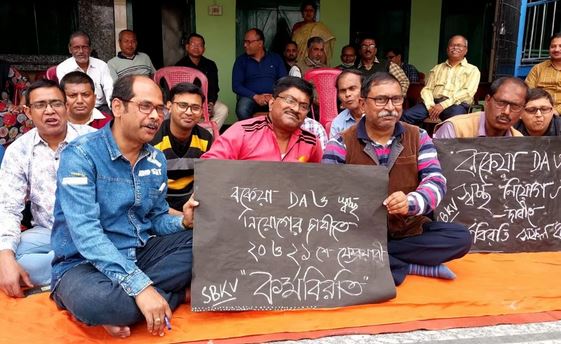 বকেয়া DA ও স্বচ্ছ
নিয়োগের দাবীতে
২০ ও ২১ শে ফেব্রুয়ারী
SBKV "কর্মবিরতি"
বকেয়া DA ও
স্বচ্ছ নিয়োগ
SBKV